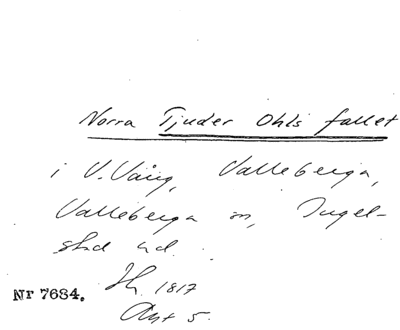 Norra Tjuder Ohls fallet
i V. Väng, Valleberga,
Valleberga sn, Ingel-
stad hd.
Nr 7684. Sk. 1817
Akt 5.